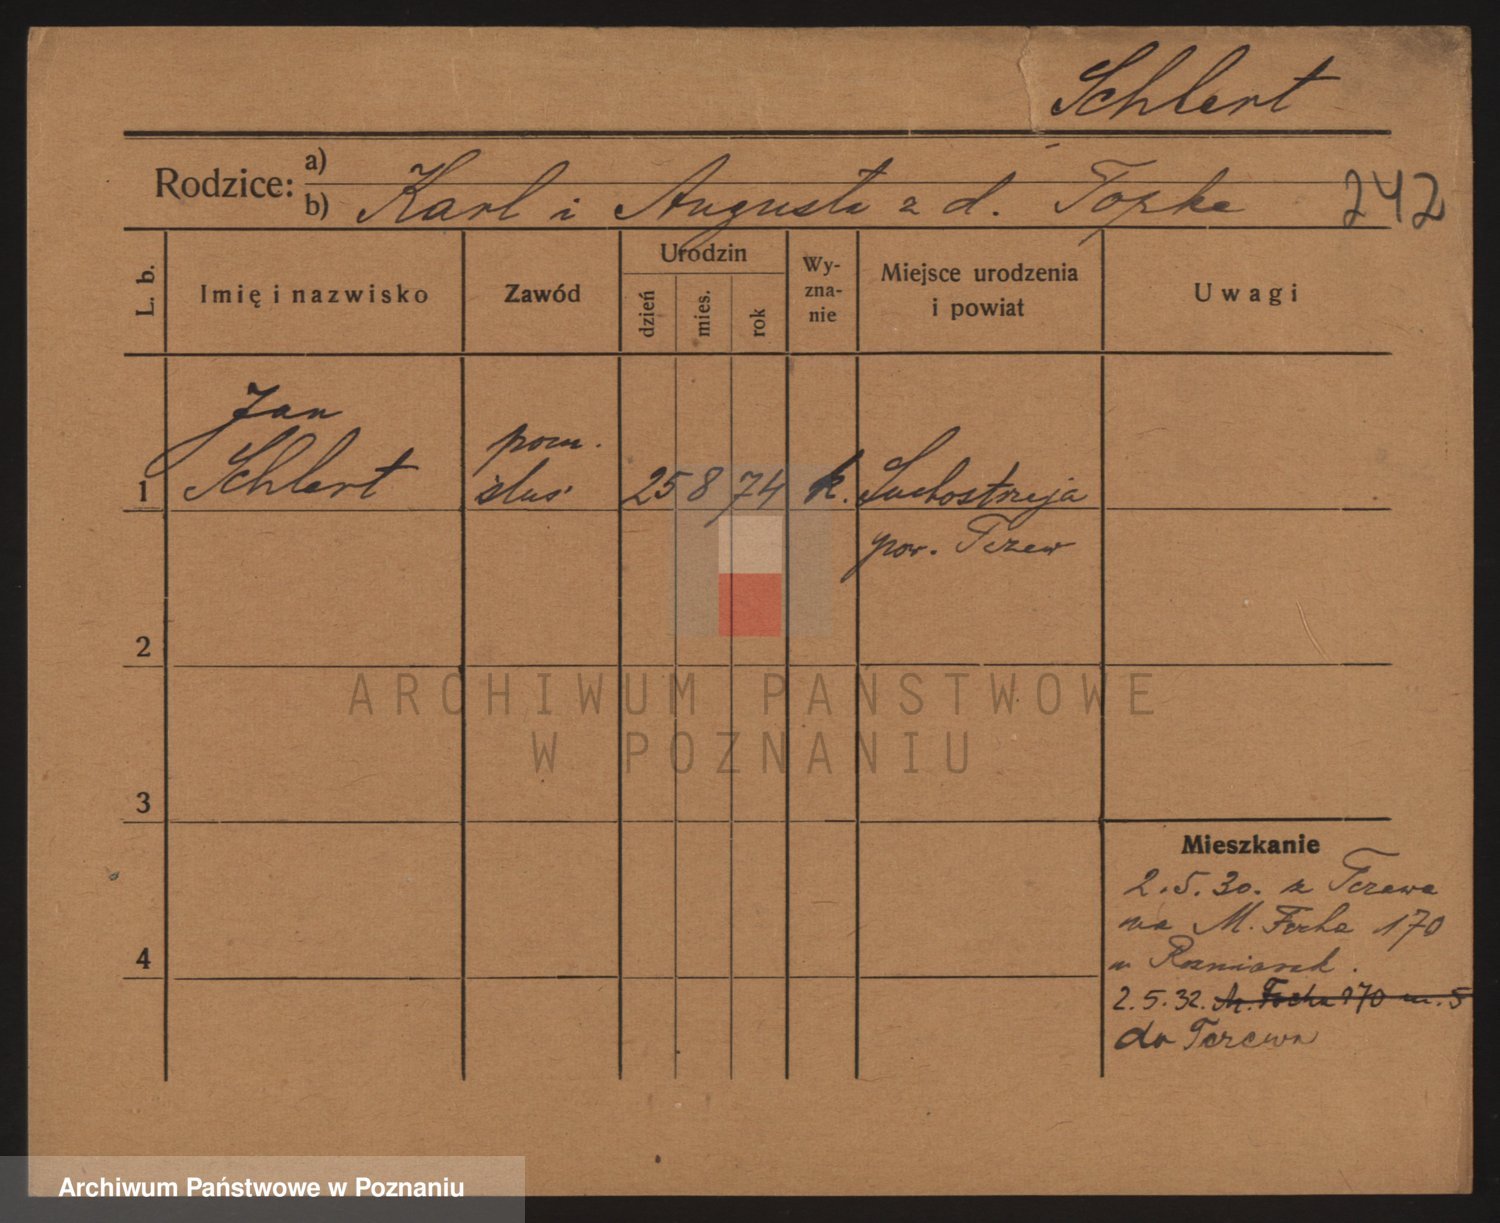 Schlert
Rodzice: a)
b) Karl i Augusta z d. Topke
242
L. b.
Imię i nazwisko
Zawód
Urodzin
dzień
mies.
rok
Wy-
zna-
nie
Miejsce urodzenia
i powiat
Uwagi
Jan
Schlert
pom.
ślus.
1
25 8 74 k. Suchostrzeja
pow. Tczew
2
ARCHIWUM PAŃSTWOWE
W POZNANIU
3
Mieszkanie
2.5.30. z Tczewa
na M. Focha 170
4
2.5.32. M. Focha 170 m. 5
do Tczewa
Archiwum Państwowe w Poznaniu